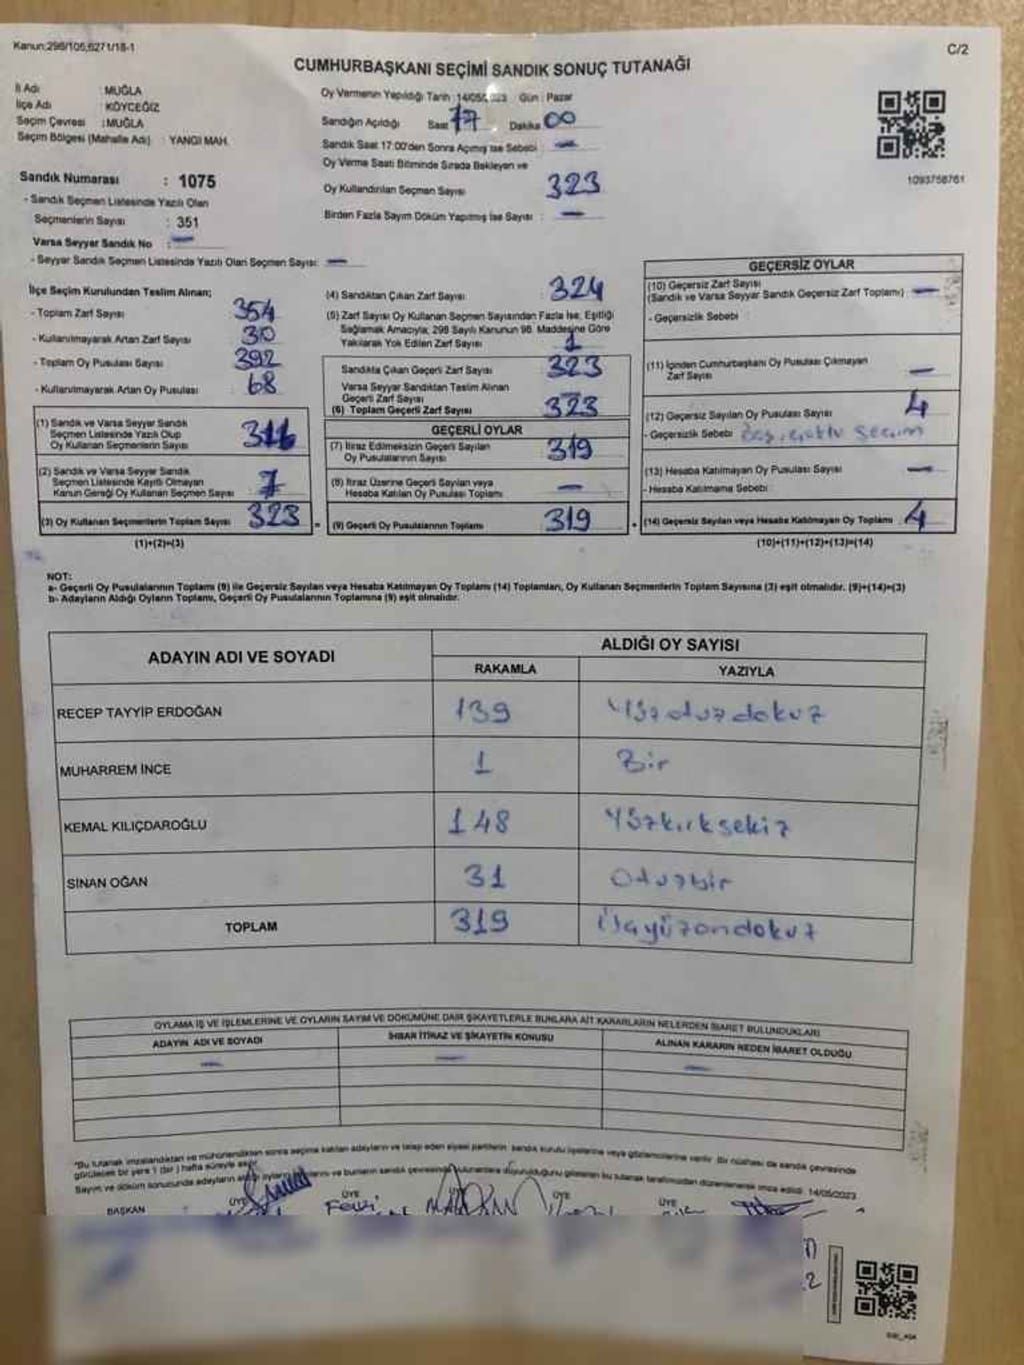 Kanun:298/105,6271/18-1
C/2
CUMHURBAŞKANI SEÇİMİ SANDIK SONUÇ TUTANAĞI
İl Adı : MUĞLA
İlçe Adı : KÖYCEĞİZ
Seçim Çevresi : MUĞLA
Seçim Bölgesi (Mahalle Adı) : YANGI MAH.
Sandık Numarası : 1075
- Sandık Seçmen Listesinde Yazılı Olan
Seçmenlerin Sayısı : 351
Varsa Seyyar Sandık No : —
- Seyyar Sandık Seçmen Listesinde Yazılı Olan Seçmen Sayısı: —
Oy Vermenin Yapıldığı Tarih : 14/05/2023 Gün : Pazar
Sandığın Açıldığı Saat 17 Dakika 00
Sandık Saat 17:00'den Sonra Açımış İse Sebebi : —
Oy Verme Saati Bitiminde Sırada Bekleyen ve
Oy Kullandırılan Seçmen Sayısı 323
Birden Fazla Sayım Döküm Yapılmış İse Sayısı : —
1093758761
İlçe Seçim Kurulundan Teslim Alınan;
- Toplam Zarf Sayısı 354
- Kullanılmayarak Artan Zarf Sayısı 30
- Toplam Oy Pusulası Sayısı 392
- Kullanılmayarak Artan Oy Pusulası 68
(1) Sandık ve Varsa Seyyar Sandık
Seçmen Listesinde Yazılı Olup
Oy Kullanan Seçmenlerin Sayısı 316
(2) Sandık ve Varsa Seyyar Sandık
Seçmen Listesinde Kayıtlı Olmayan
Kanun Gereği Oy Kullanan Seçmen Sayısı 7
(3) Oy Kullanan Seçmenlerin Toplam Sayısı 323
(1)+(2)=(3)
(4) Sandıktan Çıkan Zarf Sayısı 324
(5) Zarf Sayısı Oy Kullanan Seçmen Sayısından Fazla İse; Eşitliği
Sağlamak Amacıyla; 298 Sayılı Kanunun 98. Maddesine Göre
Yakılarak Yok Edilen Zarf Sayısı 1
Sandıkta Çıkan Geçerli Zarf Sayısı 323
Varsa Seyyar Sandıktan Teslim Alınan
Geçerli Zarf Sayısı
(6) Toplam Geçerli Zarf Sayısı 323
GEÇERLİ OYLAR
(7) İtiraz Edilmeksizin Geçerli Sayılan
Oy Pusulalarının Sayısı 319
(8) İtiraz Üzerine Geçerli Sayılan veya
Hesaba Katılan Oy Pusulası Toplamı —
= (9) Geçerli Oy Pusulalarının Toplamı 319
GEÇERSİZ OYLAR
(10) Geçersiz Zarf Sayısı
(Sandık ve Varsa Seyyar Sandık Geçersiz Zarf Toplamı) —
- Geçersizlik Sebebi :
(11) İçinden Cumhurbaşkanı Oy Pusulası Çıkmayan
Zarf Sayısı —
(12) Geçersiz Sayılan Oy Pusulası Sayısı 4
- Geçersizlik Sebebi seçim
(13) Hesaba Katılmayan Oy Pusulası Sayısı —
- Hesaba Katılmama Sebebi :
+ (14) Geçersiz Sayılan veya Hesaba Katılmayan Oy Toplamı 4
(10)+(11)+(12)+(13)=(14)
NOT:
a- Geçerli Oy Pusulalarının Toplamı (9) ile Geçersiz Sayılan veya Hesaba Katılmayan Oy Toplamı (14) Toplamları, Oy Kullanan Seçmenlerin Toplam Sayısına (3) eşit olmalıdır. (9)+(14)=(3)
b- Adayların Aldığı Oyların Toplamı, Geçerli Oy Pusulalarının Toplamına (9) eşit olmalıdır.
ADAYIN ADI VE SOYADI
ALDIĞI OY SAYISI
RAKAMLA YAZIYLA
RECEP TAYYİP ERDOĞAN 139 Yüzotuzdokuz
MUHARREM İNCE 1 Bir
KEMAL KILIÇDAROĞLU 148 Yüzkırksekiz
SİNAN OĞAN 31 Otuzbir
TOPLAM 319 Üçyüzondokuz
OYLAMA İŞ VE İŞLEMLERİNE VE OYLARIN SAYIM VE DÖKÜMÜNE DAİR ŞİKAYETLERLE BUNLARA AİT KARARLARIN NELERDEN İBARET BULUNDUKLARI
ADAYIN ADI VE SOYADI İHBAR İTİRAZ VE ŞİKAYETİN KONUSU ALINAN KARARIN NEDEN İBARET OLDUĞU
— — —
"Bu tutanak imzalandıktan ve mühürlendikten sonra seçime katılan adayların ve talep eden siyasi partilerin sandık kurulu üyelerine veya gözlemcilerine verilir. Bir nüshası da sandık çevresinde
görülecek bir yere 1 (bir) hafta süreyle asılır.
Sayım ve döküm sonucunda adayların aldığı oyların ve bunların sandık çevresinde duyurulduğunu gösteren bu tutanak tarafımızdan düzenlenerek imza edildi. 14/05/2023
BAŞKAN ÜYE ÜYE ÜYE ÜYE
Fevzi